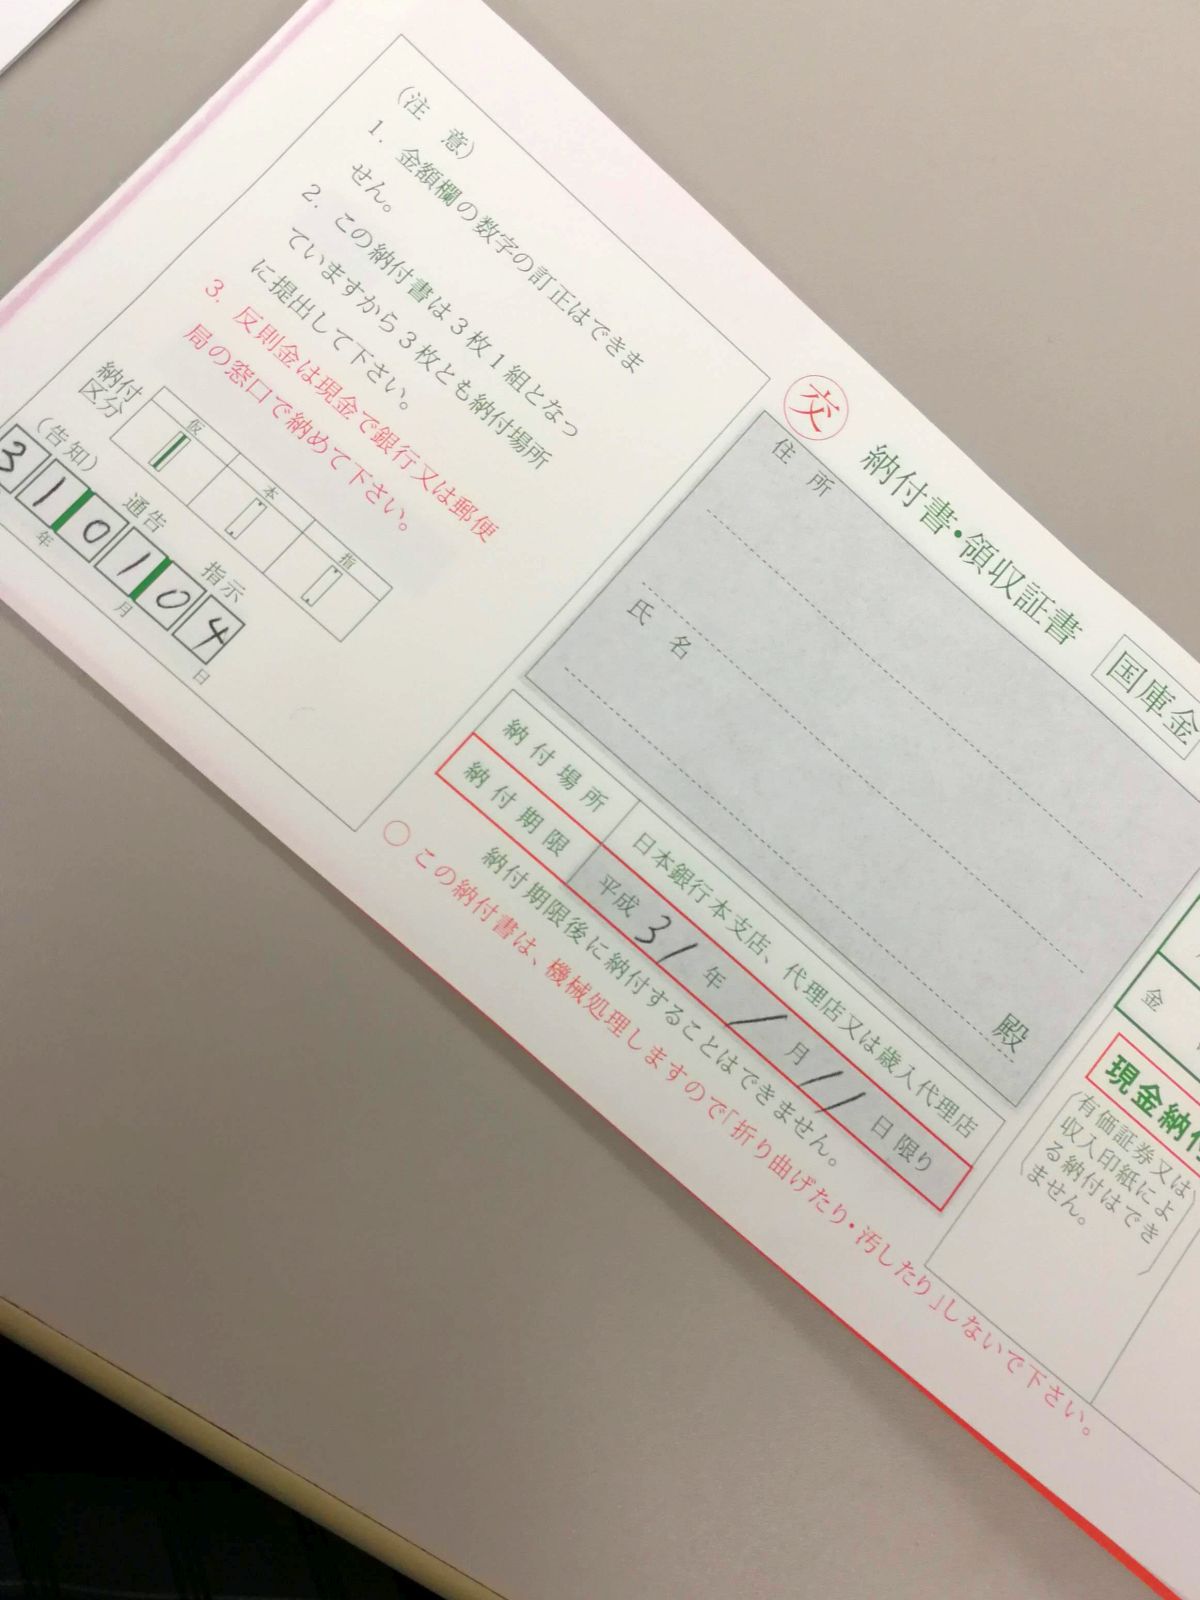 (注 意)
1. 金額欄の数字の訂正はできま
せん。
2. この納付書は3枚1組となっ
ていますから3枚とも納付場所
に提出して下さい。
3. 反則金は現金で銀行又は郵便
局の窓口で納めて下さい。
納付
区分
仮
本
指
(告知)
通告
指示
3 1 0 1 0 4
年
月
日
交
納付書・領収証書
国庫金
住 所
氏 名
殿
納付場所
日本銀行本支店、代理店又は歳入代理店
納付期限
平成 31 年 1 月 11 日限り
納付期限後に納付することはできません。
○ この納付書は、機械処理しますので「折り曲げたり・汚したり」しないで下さい。
金
現金納付
(有価証券又は
収入印紙によ
る納付はでき
ません。)